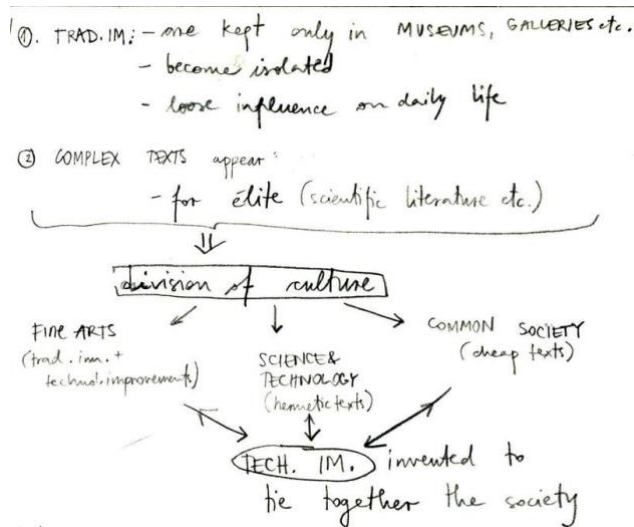 ①. TRAD. IM: - are kept only in MUSEUMS, GALLERIES etc.
- become isolated
- loose influence on daily life
② COMPLEX TEXTS appear:
- for élite (scientific literature etc.)
division of culture
FINE ARTS
(trad. im. +
technol. improvements)
SCIENCE &
TECHNOLOGY
(hermetic texts)
COMMON SOCIETY
(cheap texts)
TECH. IM. invented to
tie together the society